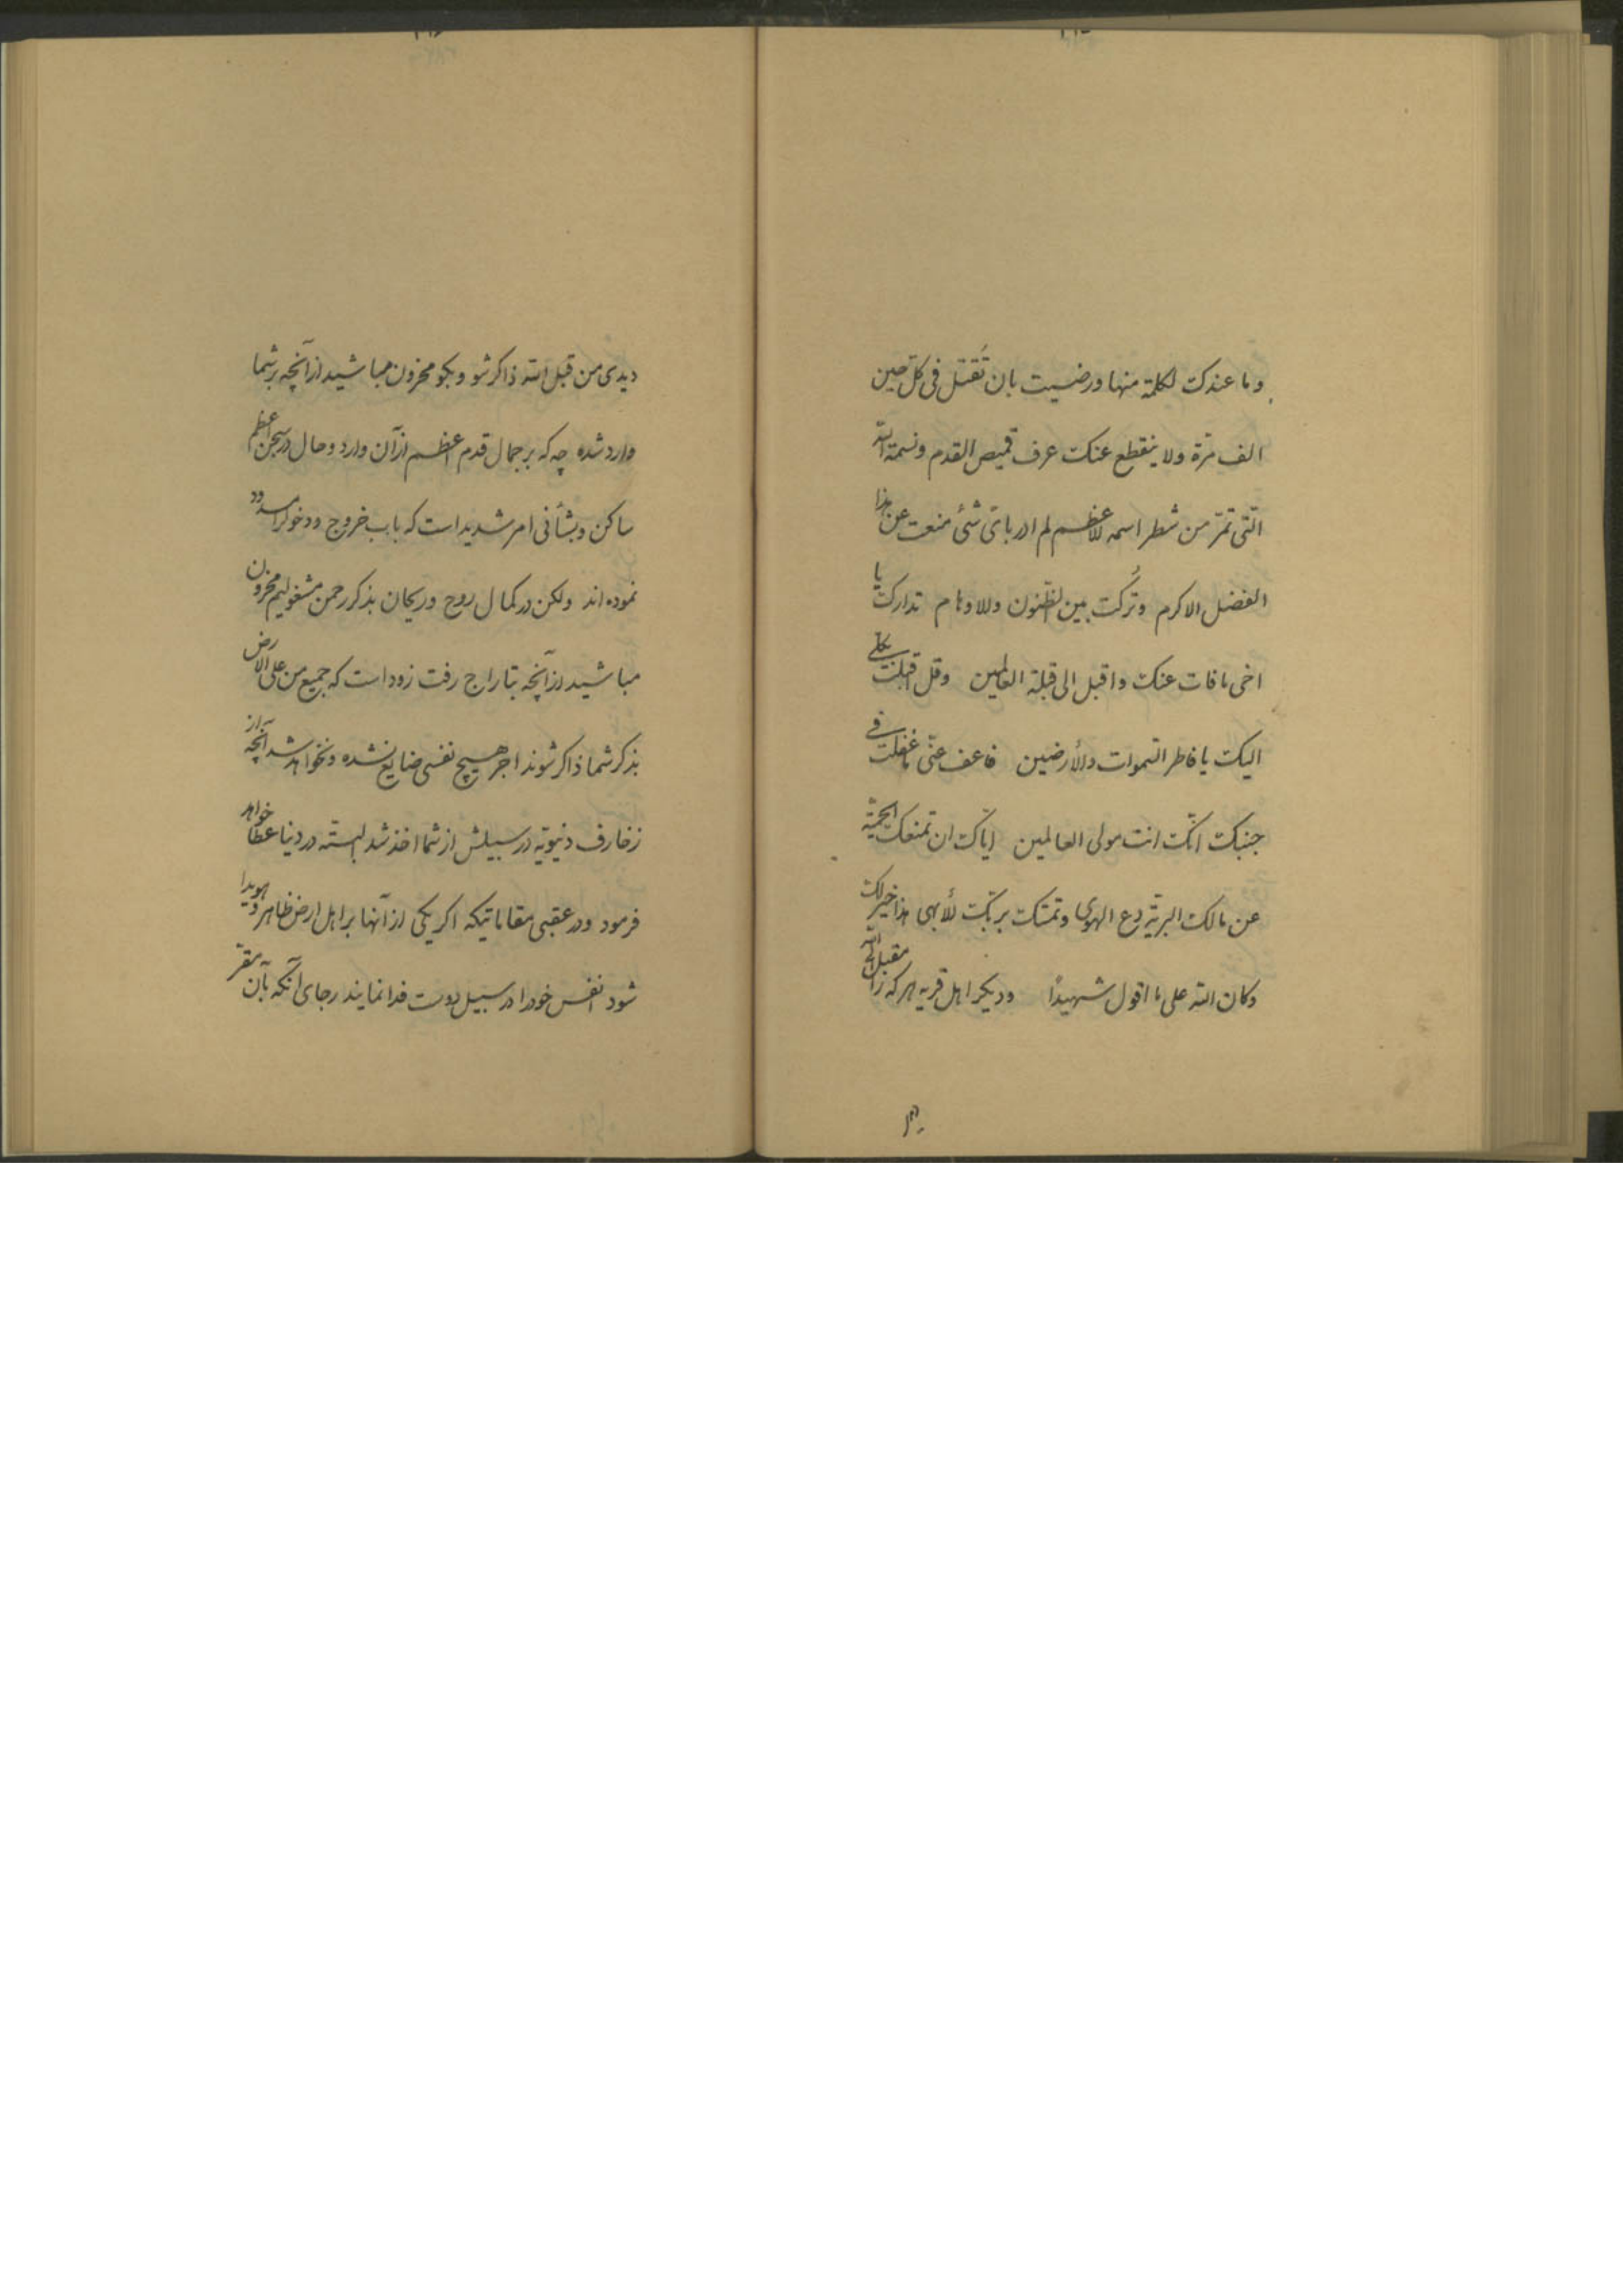 وما عندک لکلمة منها ورضیت بان تُقتل فی کل حین
الف مرّة ولا ینقطع عنک عرف قمیص القدم ونسمة الله
الّتی تمرّ من شطر اسمه الاعظم لم ادر بایّ شئ منعت عن هذا
الفضل الاکرم وتُرکت بین الظنون والاوهام تدارک یا
اخی ما فات عنک واقبل الی قبلة العالمین وقل اقبلت بکلّی
الیک یا فاطر السّموات والأرضین فاعف عنّی ما غفلت فی
جنبک انّک انت مولی العالمین ایّاک ان تمنعک الحمیّة
عن مالک البریّة دع الهوی وتمسّک بربّک الأبهی هذا خیر لک
وکان الله علی ما اقول شهیدًا ودیگر اهل قریه هر که را مقبل الی الله
دیدی من قبل الله ذاکر شو وبگو محزون مباشید از آنچه بر شما
وارد شده چه که بر جمال قدم اعظم از آن وارد وحال در سجن اعظم
ساکن وبشأنی امر شدید است که باب خروج ودخول را مسدود
نموده اند ولکن در کمال روح وریحان بذکر رحمن مشغولیم محزون
مباشید از آنچه بتاراج رفت زود است که جمیع من علی الارض
بذکر شما ذاکر شوند اجر هیچ نفسی ضایع نشده ونخواهد شد آنچه از
زخارف دنیویّه در سبیلش از شما اخذ شد البتّه در دنیا عطا خواهد
فرمود ودر عقبی مقاماتیکه اگر یکی از آنها بر اهل ارض ظاهر وهویدا
شود انفس خود را در سبیل دوست فدا نمایند رجای آنکه بآن مقرّ